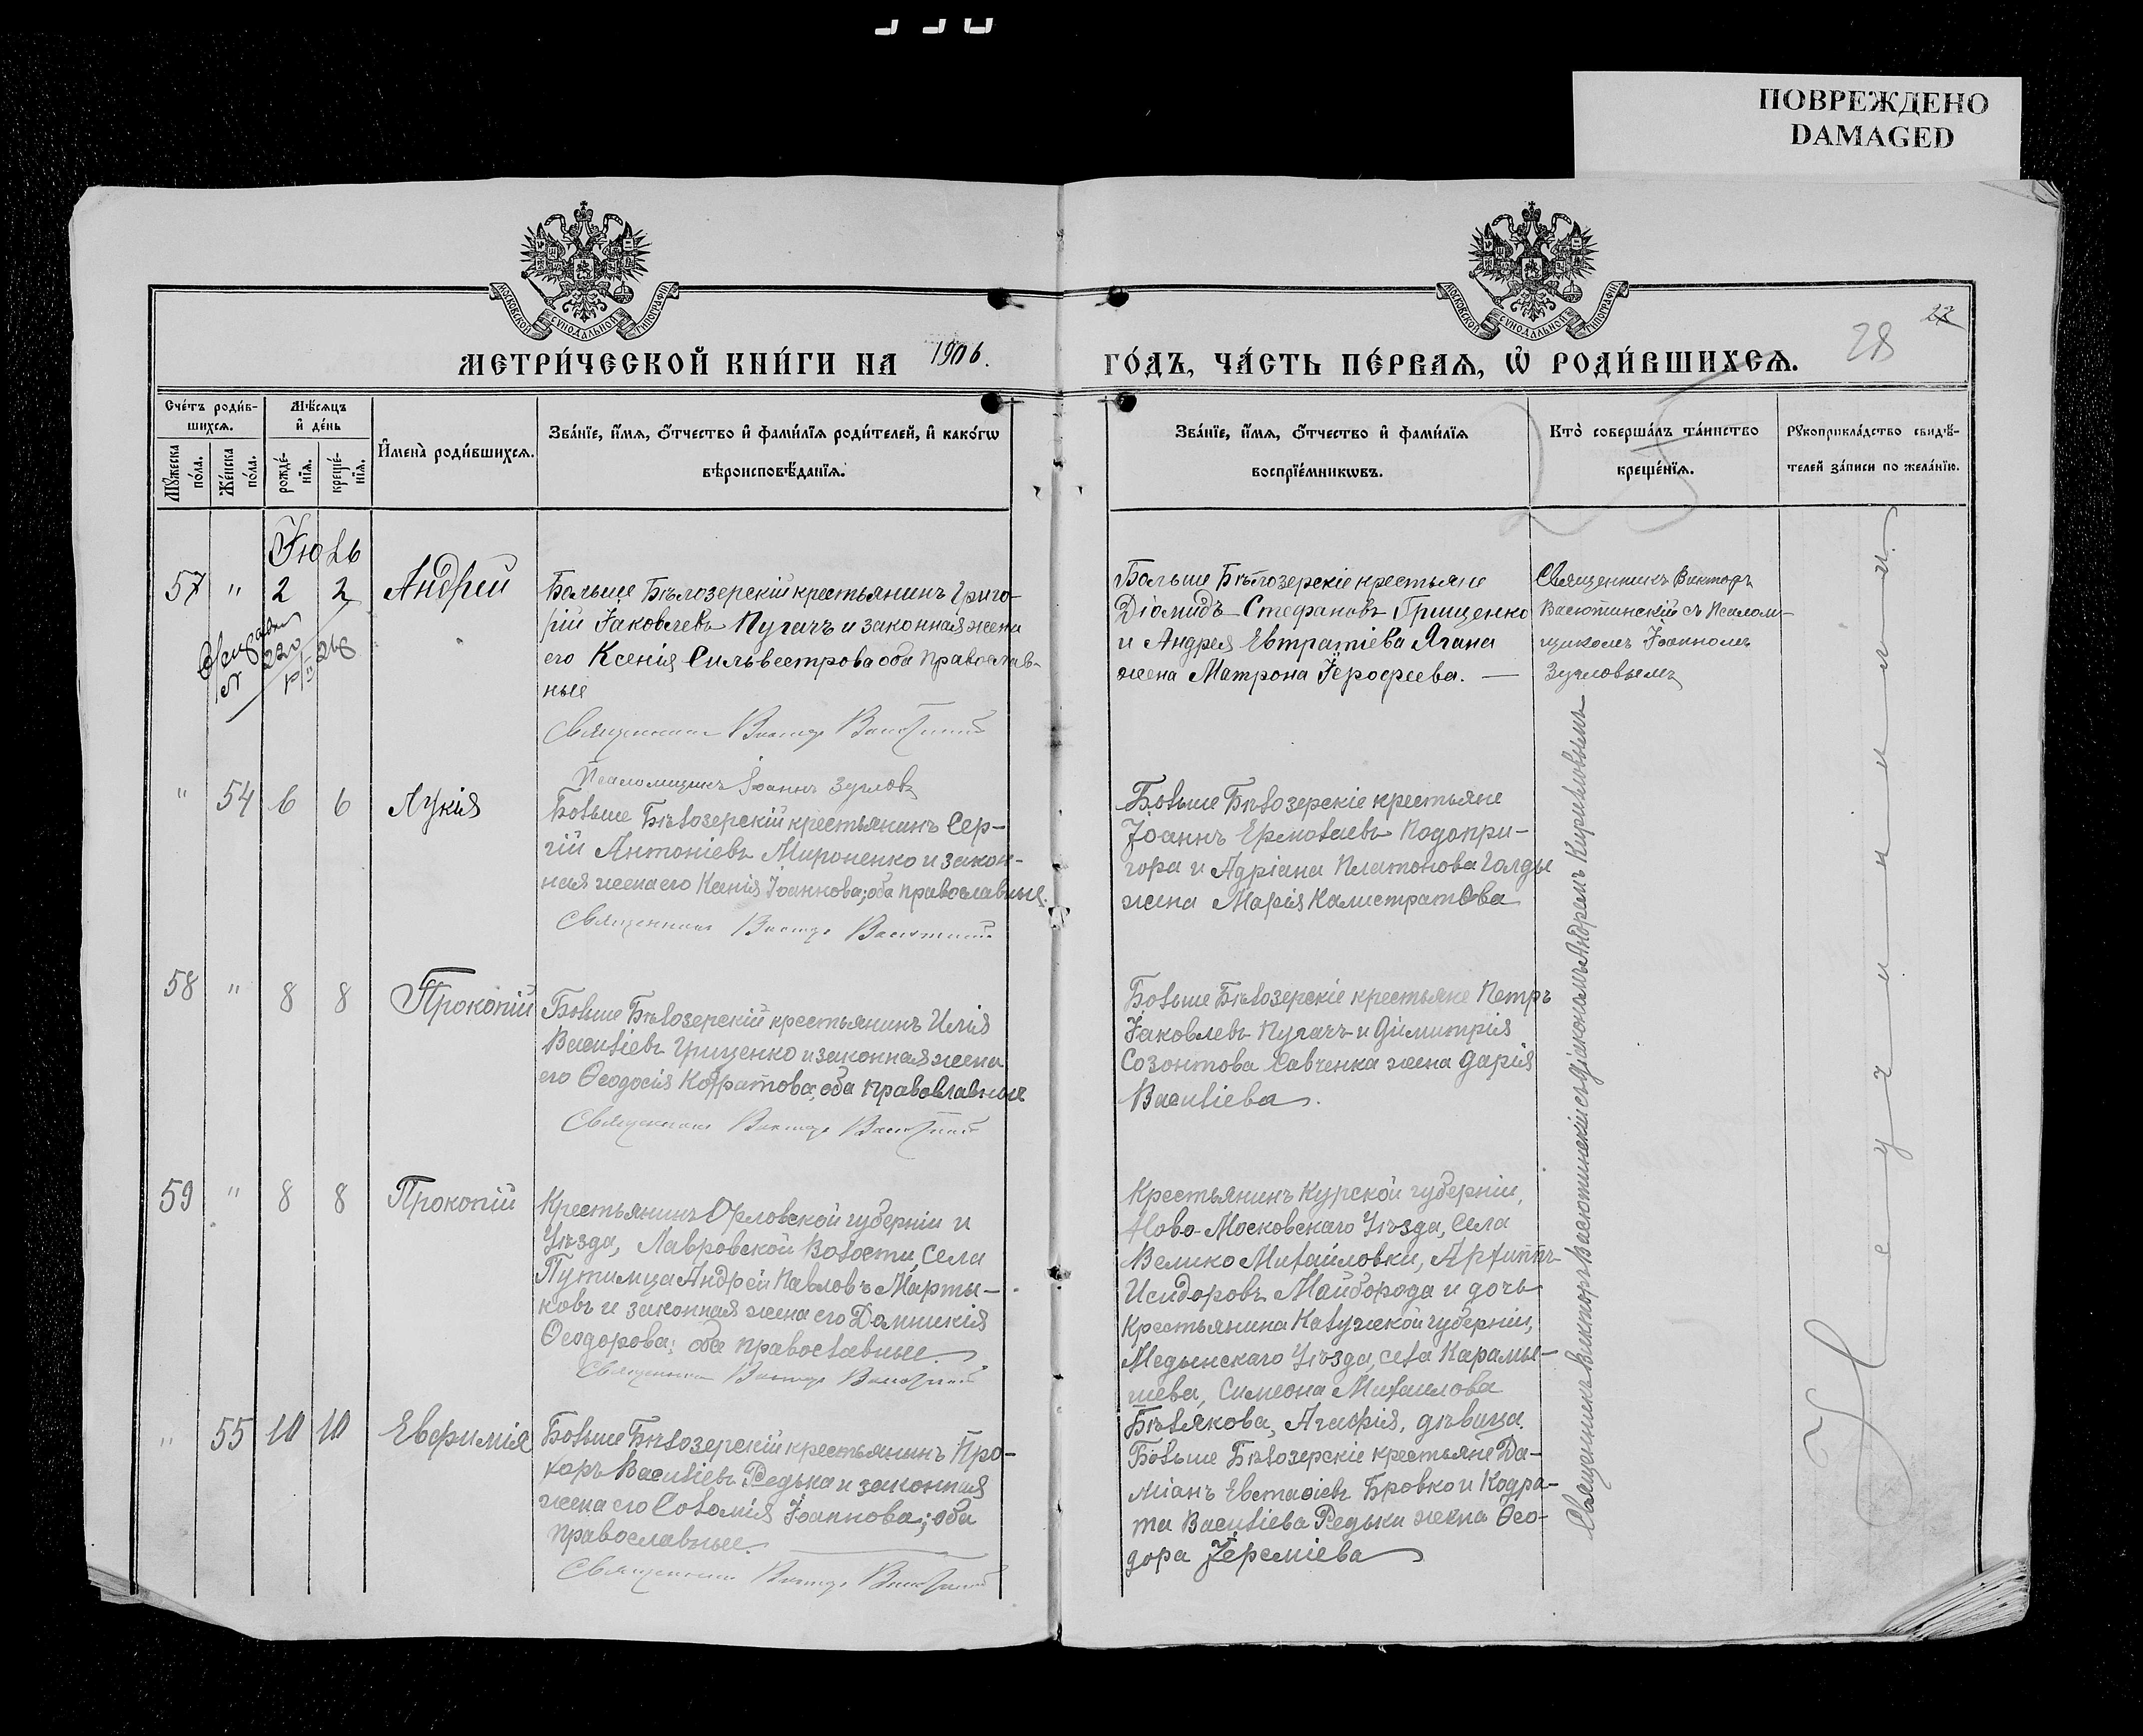 ПОВРЕЖДЕНО
DAMAGED
МОСКОВСКОЙ СѴНОДАЛЬНОЙ ТИПОГРАФІИ
МОСКОВСКОЙ СѴНОДАЛЬНОЙ ТИПОГРАФІИ
МЕТРИ́ЧЕСКОЙ КНИ́ГИ НА 1906.
ГО́ДЪ, ЧА́СТЬ ПЕ́РВАѦ, Ѡ҆ РОДИ́ВШИХСѦ.
28
27
Сче́тъ роди́в-
шихсѧ.
Мѣ́сѧцъ
и҆ де́нь
Мꙋ́жеска
по́ла.
Же́нска
по́ла.
рожде́-
нїѧ.
креще́-
нїѧ.
И҆мена̀ роди́вшихсѧ.
Зва́нїе, и҆́мѧ, ѻ҆́тчество и҆ фами́лїѧ роди́телей, и҆ како́гѡ
вѣроисповѣ́данїѧ.
Зва́нїе, и҆́мѧ, ѻ҆́тчество и҆ фами́лїѧ
воспрїе́мникѡвъ.
Кто̀ соверша́лъ та́инство
креще́нїѧ.
Рꙋкоприкла́дство свидѣ́-
телей за́писи по жела́нїю.
Іюль
57 " 2 2 Андрей
Больше Бѣлозерскій крестьянинъ Григо-
рій Іаковлевъ Пугачъ и законная жена
его Ксенія Сильвестрова оба православ-
ные
Священникъ Викторъ Васютинскій
Псаломщикъ Іоаннъ Зуглов
Больше Бѣлозерскіе крестьяне
Діомидъ Стефановъ Грищенко
и Андрея Евтратіева Ягана
жена Матрона Іерофеева.
Священникъ Викторъ
Васютинскій съ Псалом-
щикомъ Іоанномъ
Зугловымъ
" 54 6 6 Лукія
Больше Бѣлозерскій крестьянинъ Сер-
гій Антоніевъ Мироненко и закон-
ная жена его Ксенія Іоаннова; оба православные.
Священникъ Викторъ Васютинскій
Больше Бѣлозерскіе крестьяне
Іоаннъ Ермолаевъ Подопри-
гора и Адріана Платонова Голды
жена Марія Калистратова
58 " 8 8 Прокопій
Больше Бѣлозерскій крестьянинъ Илія
Василіевъ Грищенко и законная жена
его Ѳеодосія Кодратова, оба православные
Священникъ Викторъ Васютинскій
Больше Бѣлозерскіе крестьяне Петръ
Іаковлевъ Пугачъ и Димитрія
Созонтова Савченка жена Дарія
Василіева.
59 " 8 8 Прокопій
Крестьянинъ Орловской губерніи и
Уѣзда, Лавровской Волости, Села
Путимца Андрей Павловъ Марты-
ковъ и законная жена его Домникія
Ѳеодорова; оба православные.
Священникъ Викторъ Васютинскій
Крестьянинъ Курской губерніи,
Ново-Московскаго Уѣзда, Села
Велико Михайловки, Архиппъ
Исидоровъ Майборода и дочь
Крестьянина Калужской губерніи,
Медынскаго Уѣзда, села Карамы-
шева, Симеона Михаилова
Бѣлякова, Агафія, дѣвица.
" 55 10 10 Евфимія
Больше Бѣлозерскій крестьянинъ Про-
хоръ Василіевъ Редька и законная
жена его Соломія Іоаннова; оба
православные.
Священникъ Викторъ Васютинскій
Больше Бѣлозерскіе крестьяне Да-
міанъ Евстаѳіевъ Бровко и Кодра-
та Василіева Редьки жена Ѳео-
дора Іереміева
Священникъ Викторъ Васютинскій съ діакономъ Андреемъ Кирилловымъ
Неучинили.